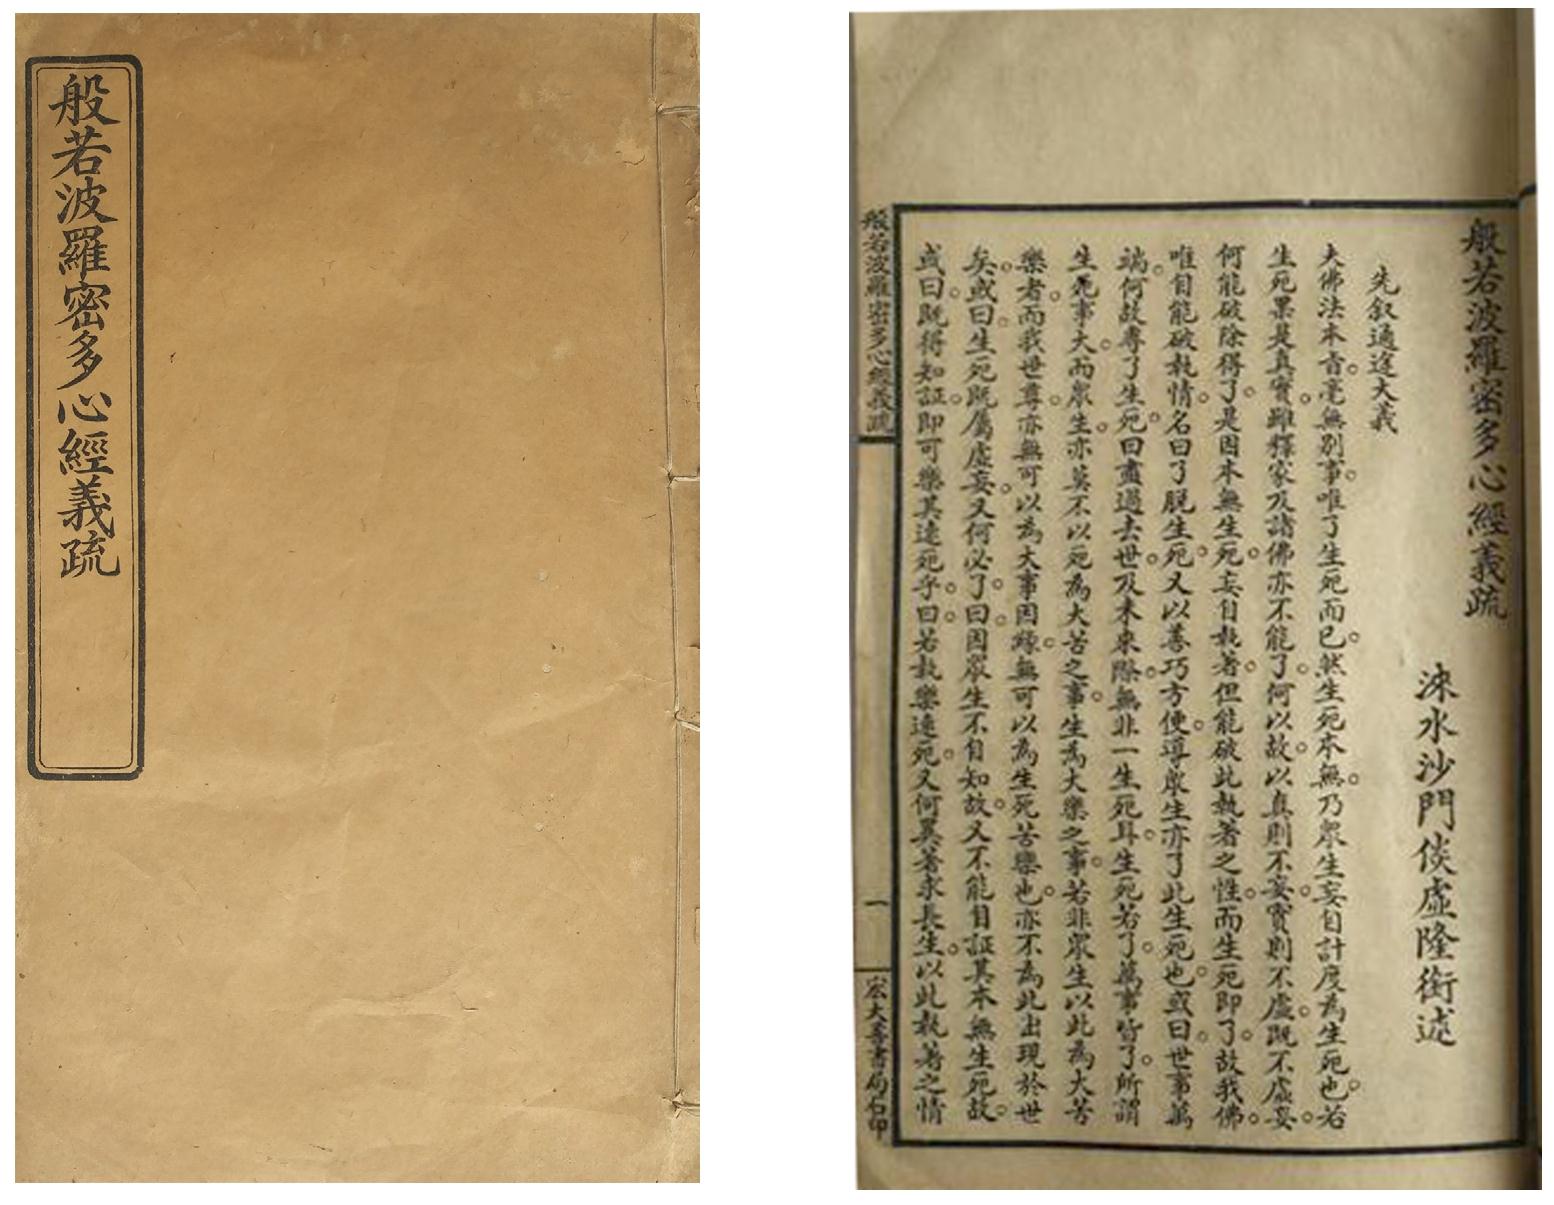 般若波羅密多心經義疏
般若波羅密多心經義疏
涑水沙門倓虛隆銜述
先叙通途大義
夫佛法本旨毫無別事唯了生死而已然生死本無乃眾生妄自計度為生死也若
生死果是真實雖釋家及諸佛亦不能了何以故以真則不妄實則不虛既不虛妄
何能破除得了是因本無生死妄自執著但能破此執著之性而生死即了故我佛
唯自能破執情名曰了脫生死又以善巧方便導眾生亦了此生死也或曰世事萬
端何故專了生死曰盡過去世及未來際無非一生死耳生死若了萬事皆了所謂
生死事大而眾生亦莫不以死為大苦之事生為大樂之事若非眾生以此為大苦
樂者而我世尊亦無可以為大事因緣無可以為生死苦樂也亦不為此出現於世
矣或曰生死既屬虛妄又何必了曰因眾生不自知故又不能自証其本無生死故
或曰既得知証即可樂其速死乎曰若執樂速死又何異著求長生以此執著之情
般若波羅密多心經義疏
一
宏大善書局石印